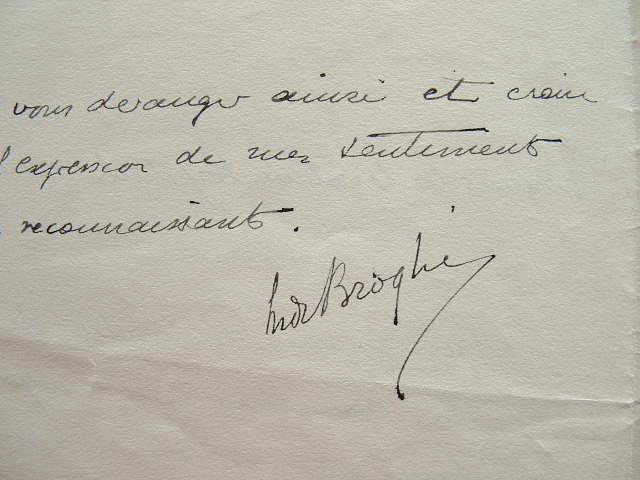 vous deranger ainsi et croire
l'expression de mes sentiments
reconnaissants.
M de Broglie